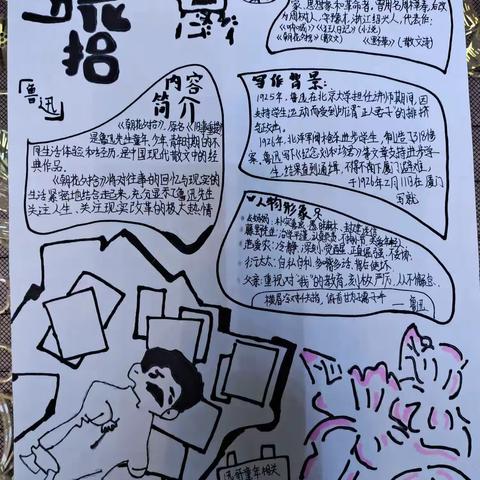 花
拾
「鲁迅」
家,思想家和革命者,曾用名周樟寿,后改
为周树人,字豫才,浙江绍兴人,代表作:
《呐喊》《狂人日记》(小说)
《朝花夕拾》(散文) 《野草》(散文诗)
内容
简介
《朝花夕拾》,原名《旧事重提》
是鲁迅先生童年、少年、青年时期的不
同生活体验和经历,是中国现代散文中的经
典作品。
《朝花夕拾》将对往事的回忆与现实的
生活紧密地结合起来,充分显示了鲁迅先生
关注人生、关注现实改革的极大热情
写作背景:
1925年,鲁迅在北京大学担任讲师期间,因
支持学生运动而受到所谓"正人君子"的排挤
1926年,北洋军阀枪杀进步学生,制造了318惨
案,鲁迅写下《纪念刘和珍君》等文章支持进步学
生,结果直到通缉,不得不南下厦门避难,
于1926年2月11日在厦门
写就
人物形象
藤野先生:治学严谨
范爱农:冷静,深刻,觉醒,正直倔强,不妥协
衍太太:自私自利,多嘴多舌,
父亲:重视对"我"的教育,刻板,严厉,从不懈怠
横眉冷对千夫指,俯首甘为孺子牛
——鲁迅
童年相关